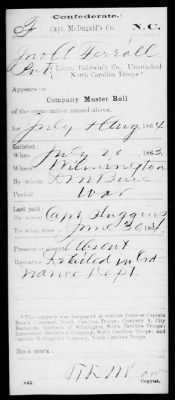 (Confederate.)
F Capt. McDugald's Co. N.C.
Jno A Ferrall
Pvt, Lieut. Baldwin's Co., Unattached
North Carolina Troops.*
Appears on
Company Muster Roll
of the organization named above,
for July & Aug, 1864.
Enlisted:
When July 20, 1863.
Where Wilmington
By whom
Period War
Last paid:
By whom Capt Huggins
To what time June 30, 1864
Present or absent Absent
Remarks: Detailed in Ord
nance Dept
*This company was designated at various times as Captain
North Carolina Troops; Company A, City
Battalion, Wilmington, North Carolina Troops;
Lieutenant Baldwin's Company, North Carolina Troops; and
Captain McDugald's Company, North Carolina Troops.
Book mark:
Copyist.